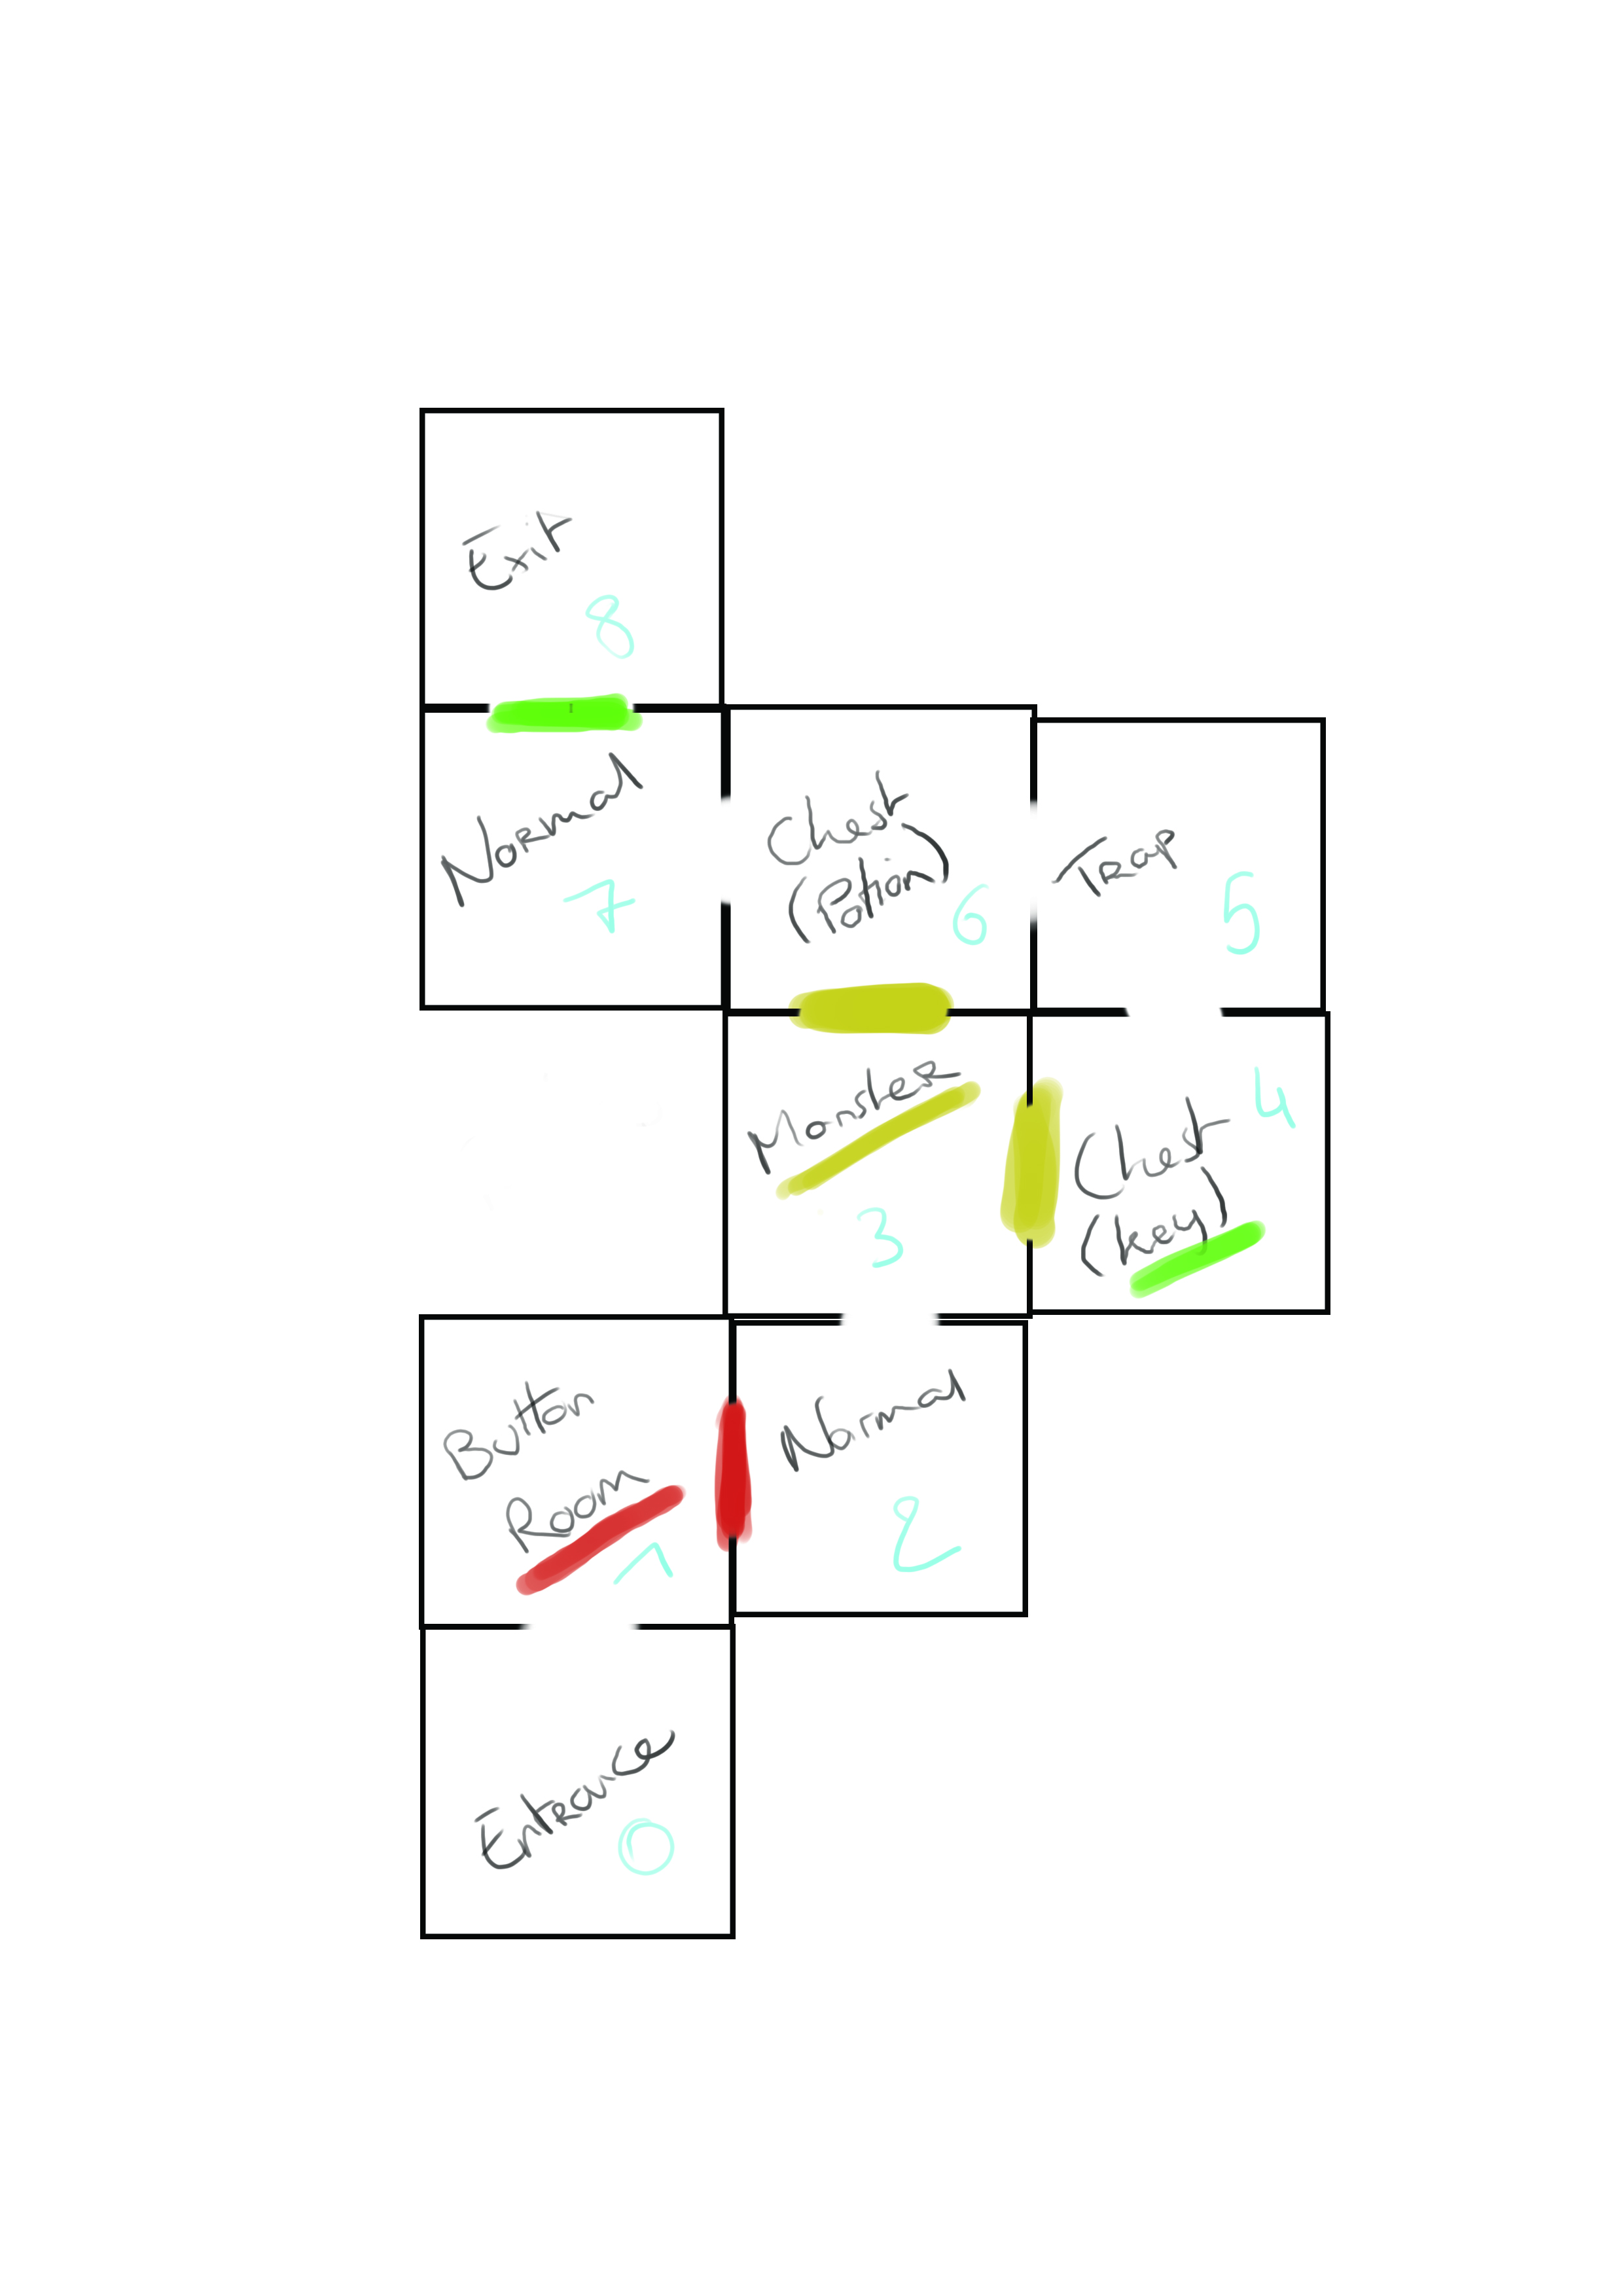 Exit
8
Normal
7
Chest
(Potion)
6
Trap
5
Monster
3
4
Chest
(key)
Button
Room
1
Normal
2
Entrance
0